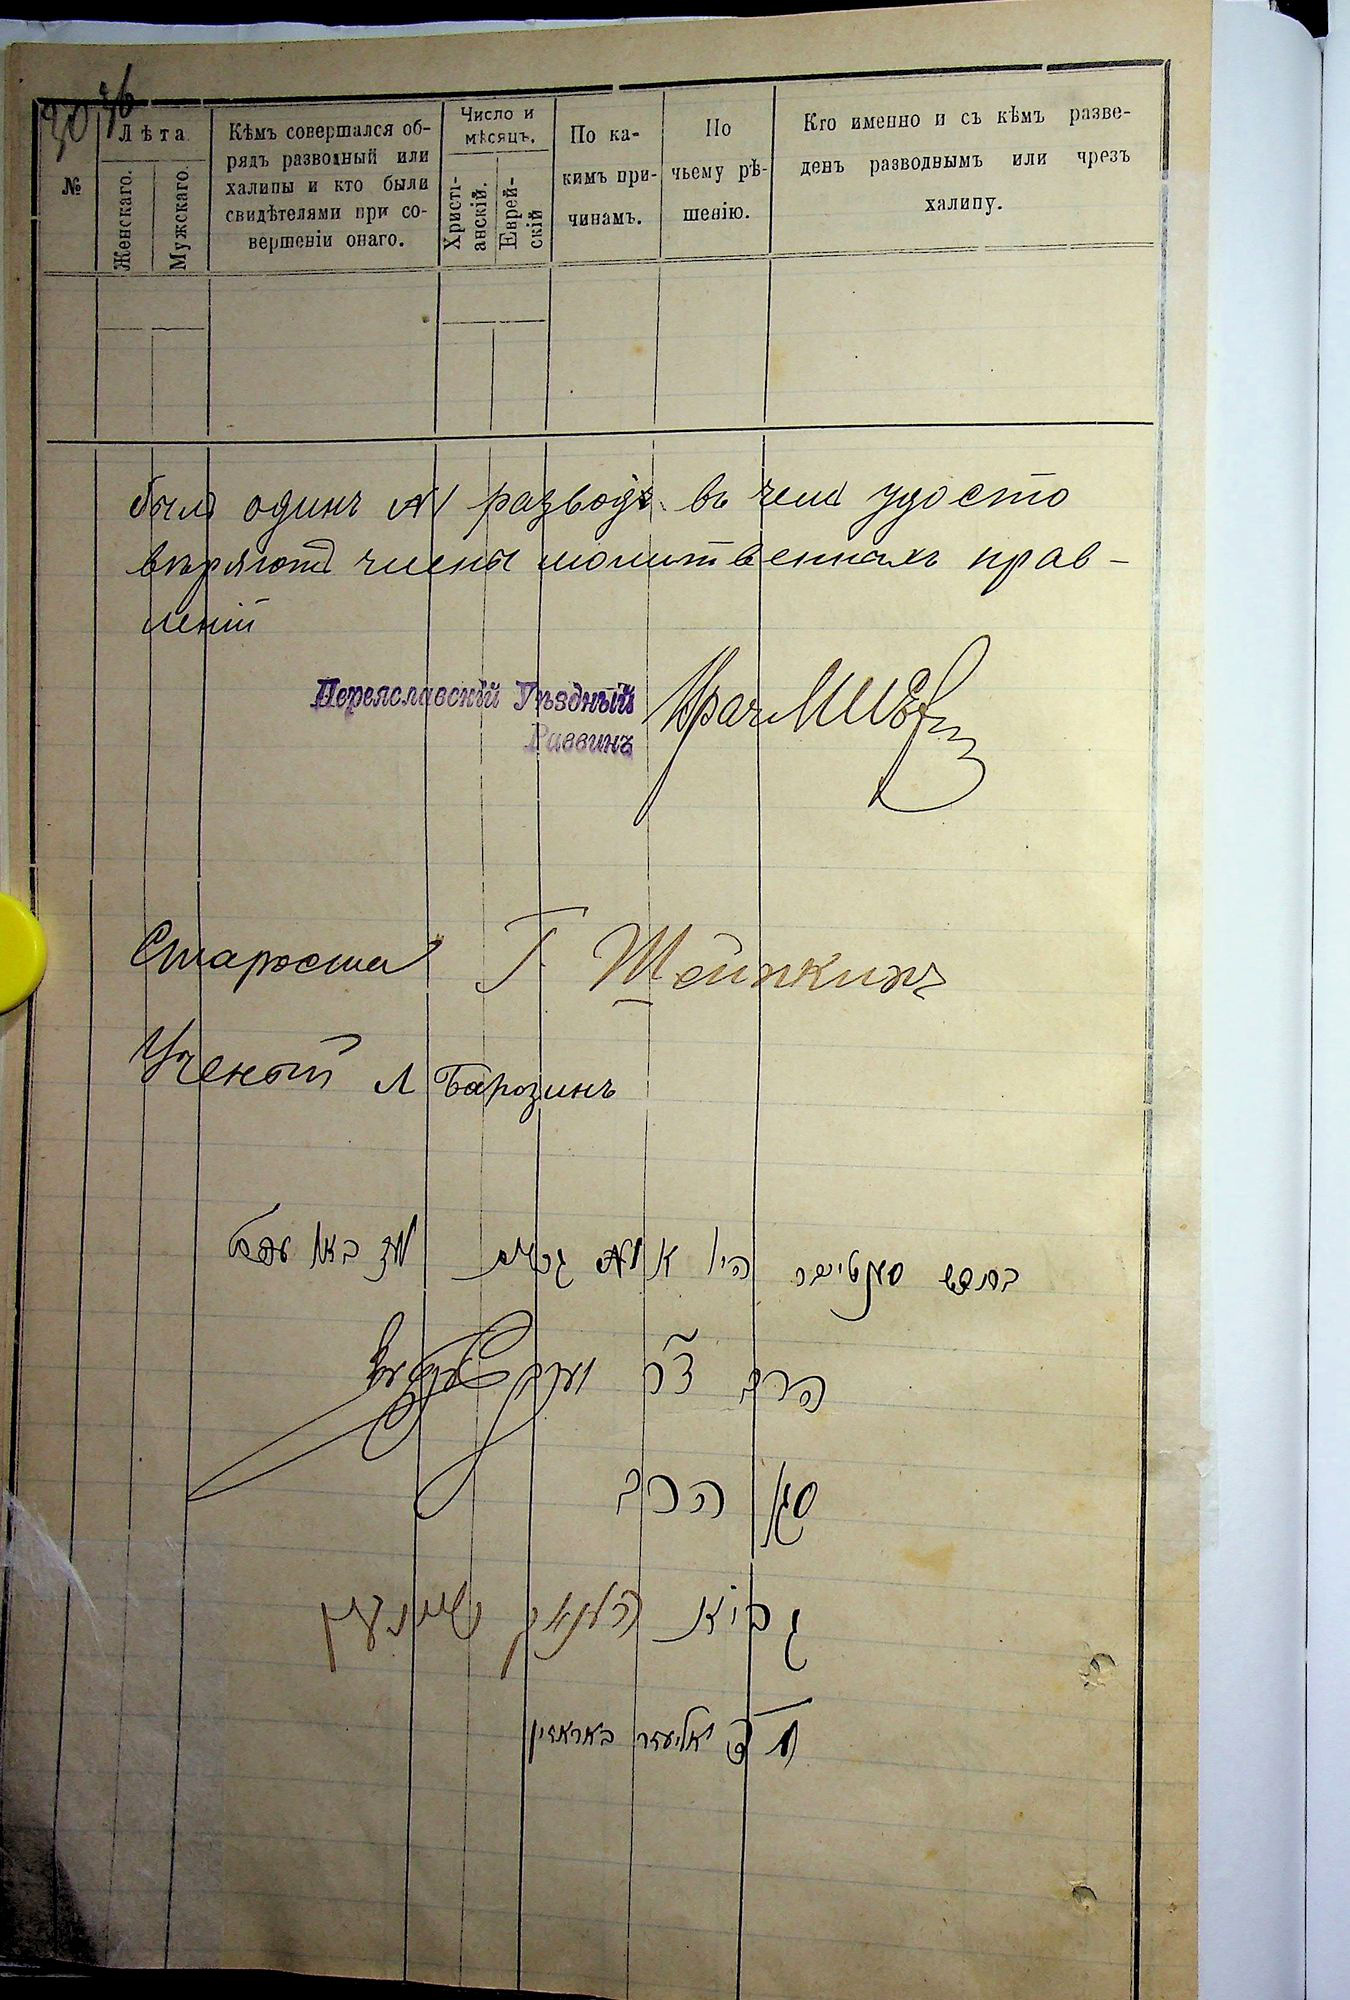 30 36
№
Лѣта
Женскаго.
Мужскаго.
Кѣмъ совершался об-
рядъ разводный или
халипы и кто были
свидѣтелями при со-
вершеніи онаго.
Число и
мѣсяцъ.
Христі-
анскій.
Еврей-
скій
По ка-
кимъ при-
чинамъ.
По
чьему рѣ-
шенію.
Кто именно и съ кѣмъ разве-
денъ разводнымъ или чрезъ
халипу.
было одинъ №1 разводъ въ чемъ удосто
вѣряютъ члены молитвенныхъ прав-
леній
Переяславскій Уѣздный
Раввинъ
Врач
Староста Г. Шейнкинъ
Ученый Л Барозинъ
בחדש היו
הרב ד״ר
סגן הרב
גבאי שיינקין
אליעזר באראזין